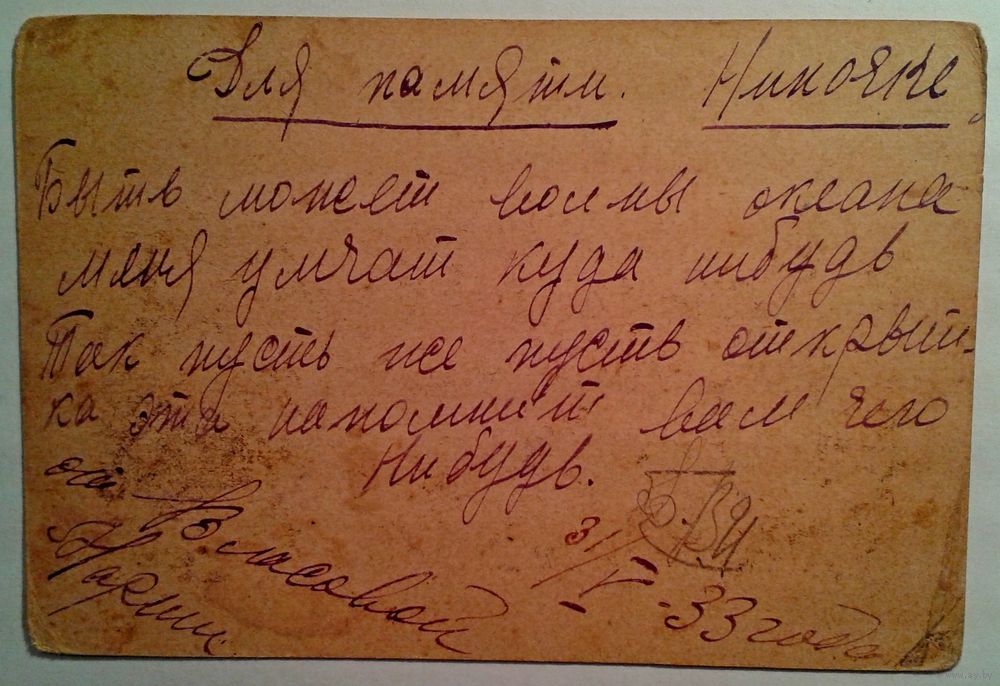 Для памяти. Никояке
Быть может волны океана
меня умчат куда нибудь
Так пусть же пусть открыт-
ка эта напомнит вам чего
Нибудь.
от Власовой
31/V-33 года
www.ay.by